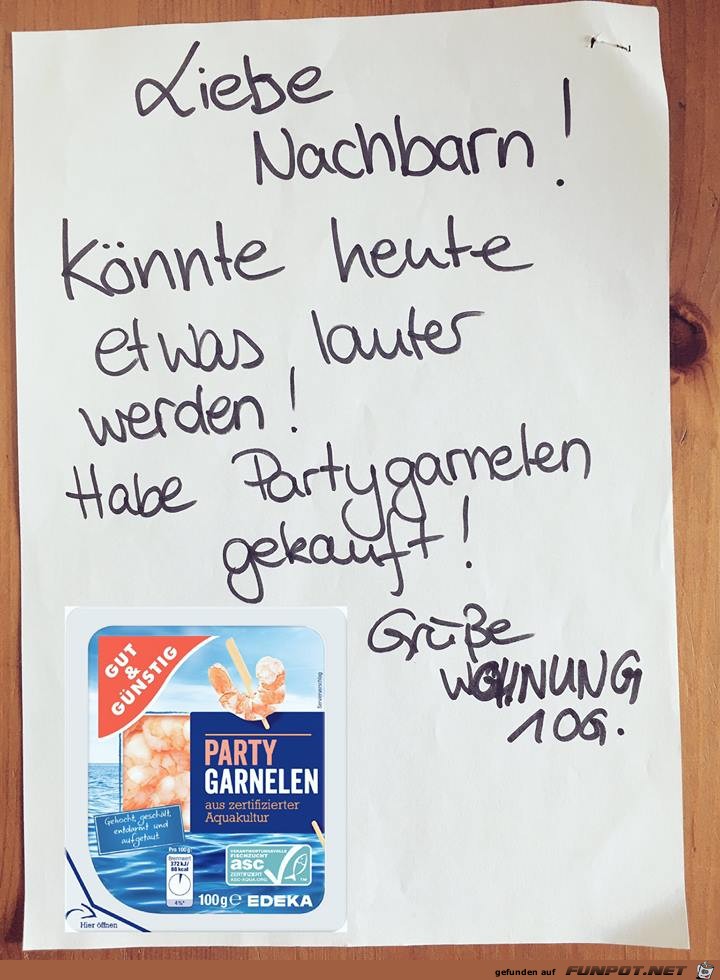 Liebe
Nachbarn!
Könnte heute
etwas lauter
werden!
Habe Partygarnelen
gekauft!
Grüße
WOHNUNG
10G.
GUT
&
GÜNSTIG
Serviervorschlag
PARTY
GARNELEN
aus zertifizierter
Aquakultur
Gekocht, geschält,
entdarmt und
aufgetaut.
Pro 100g
Brennwert
372 kJ/
88 kcal
4%*
VERANTWORTUNGSVOLLE
FISCHZUCHT
asc
ZERTIFIZIERT
ASC-AQUA.ORG
TM
100g e EDEKA
Hier öffnen
gefunden auf FUNPOT.NET